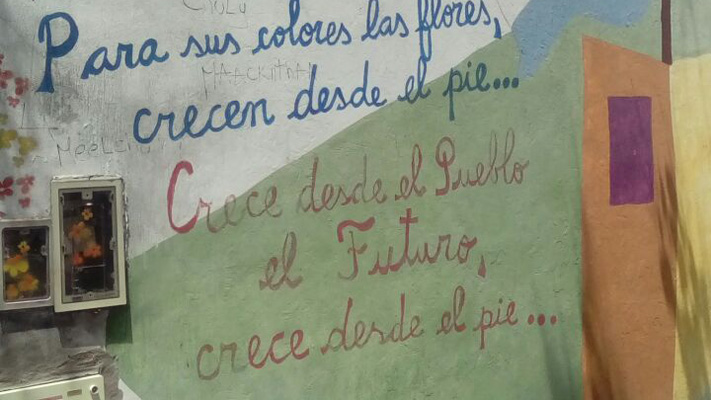 Para sus colores las flores,
crecen desde el pie...
Crece desde el Pueblo
el Futuro,
crece desde el pie...